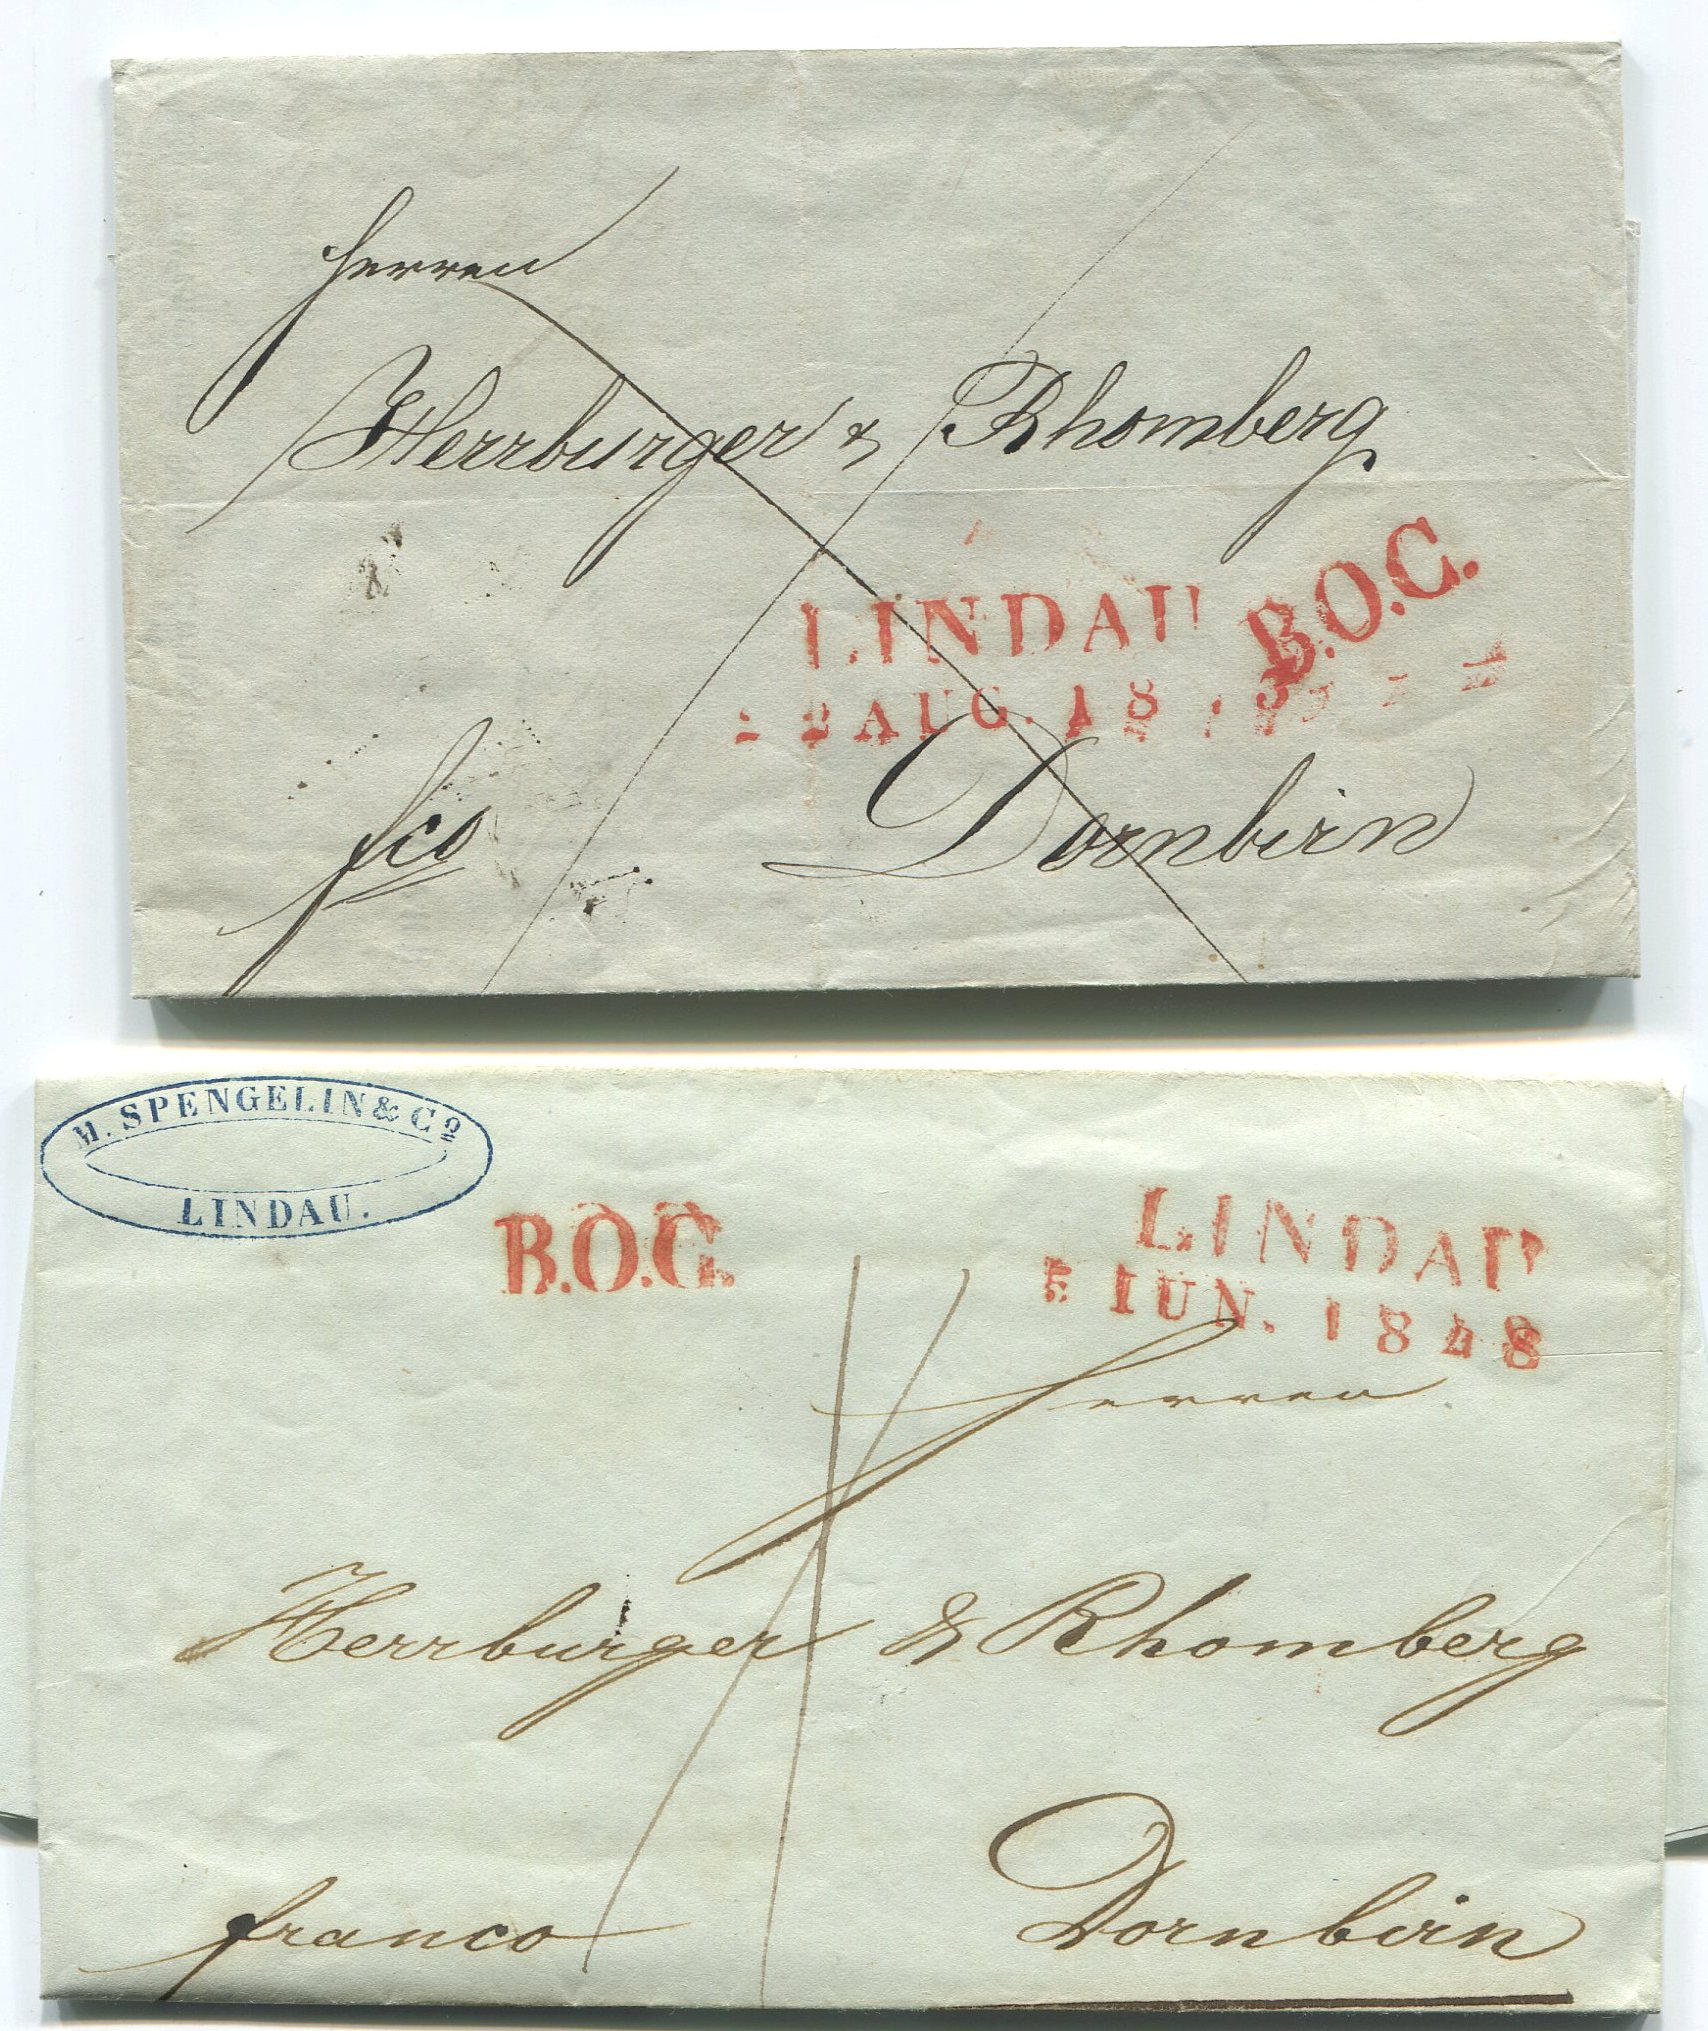 Herren
Herrburger & Rhomberg
LINDAU
B.O.C.
AUG. 18
fco
Dornbirn
M. SPENGELIN & Cº
LINDAU.
B.O.C.
LINDAU
5 IUN. 1848
Herren
Herrburger & Rhomberg
franco
Dornbirn